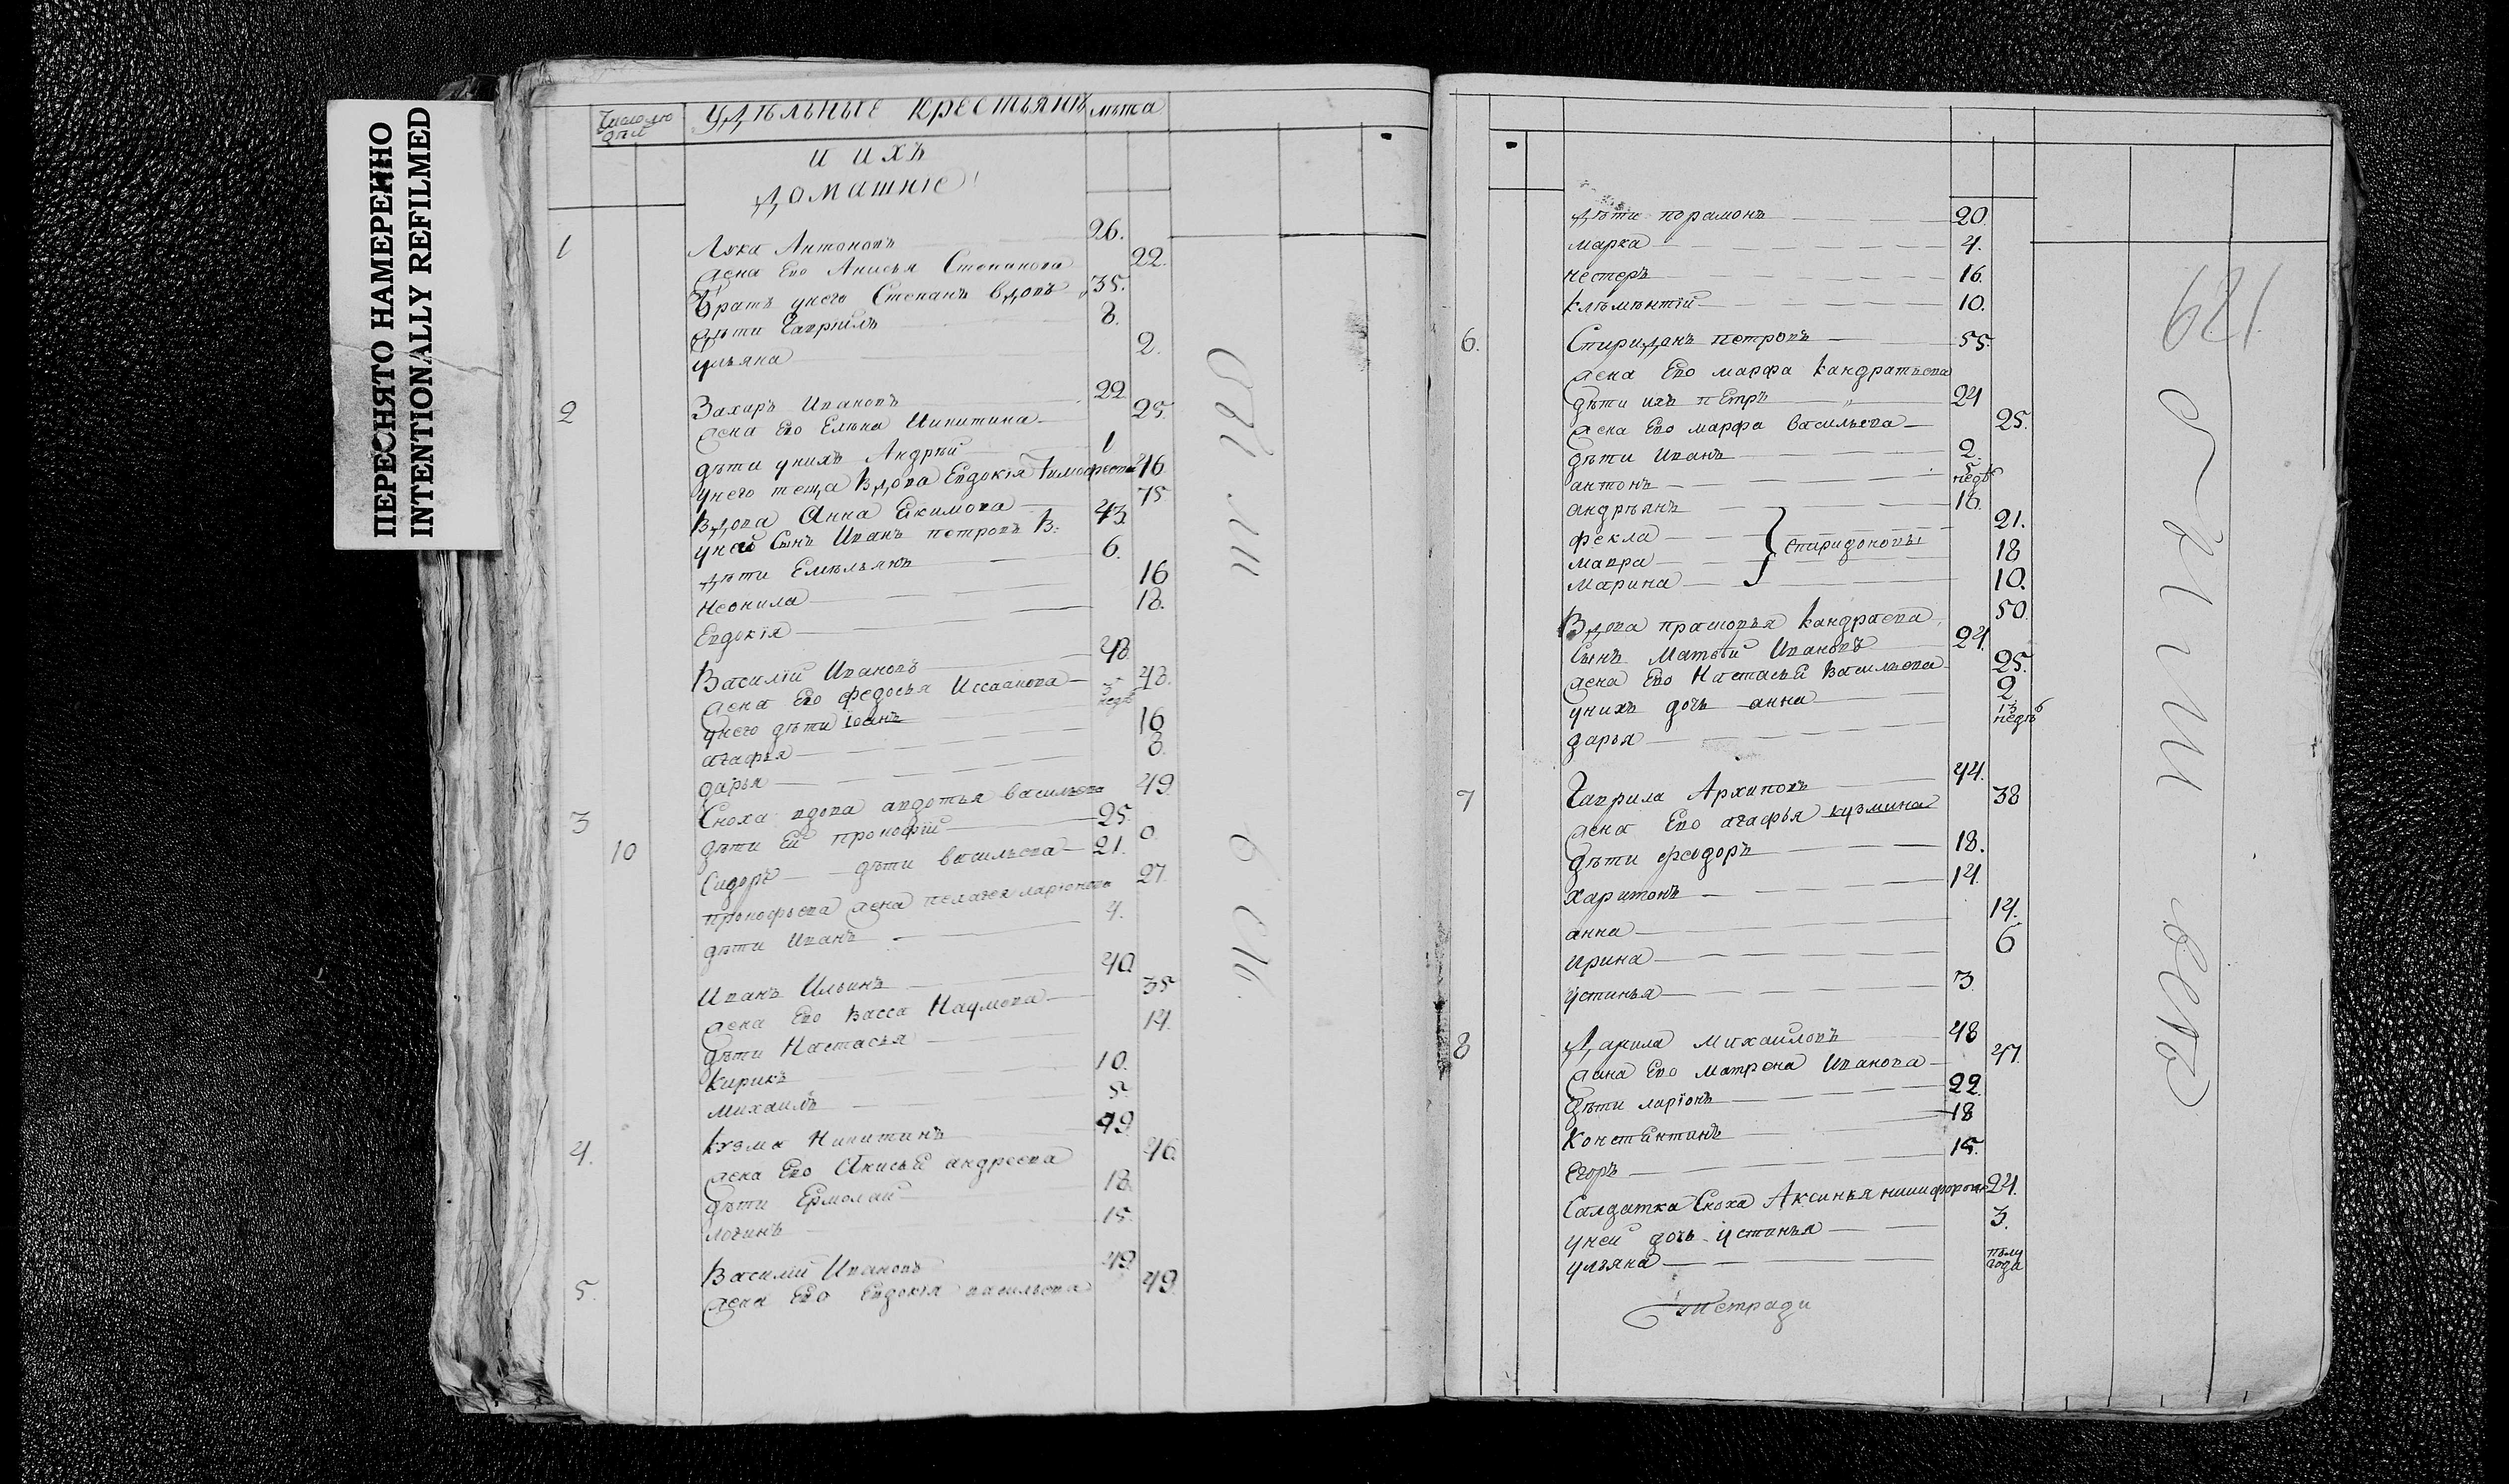 ПЕРЕСНЯТО НАМЕРЕННО
INTENTIONALLY REFILMED
Удѣльные крестьянѣ лѣта
и ихъ
домашніе
1 Лука Антоновъ 26.
жена Ево Анисья Степанова 22.
братъ унего Степанъ вдовъ 35.
дѣти Гаврiилъ 8.
ульяна 2.
2 Захаръ Ивановъ 22
жена Ево Елѣна Никитина 25.
дѣти унихъ Андрѣй 1
унего теща вдова Евдокія Тимофеева 46
вдова Анна Екимова 75
уней Сынъ Иванъ петровъ в: 43
дѣти Емѣльянъ 6.
неонила 16
Евдокія 18.
Василій Ивановъ 48.
жена Ево федосья Иссаакова 43.
унего дѣти іоанъ 3 недѣ
агафья 16
дарья 8.
3 Сноха вдова авдотья васильева 49
10 дѣти Ей прокофій 25.
Сидоръ дѣти васильева 21. 0.
прокофьева жена пелагея ларіонова 27
дѣти Иванъ 4.
Иванъ Ильинъ 40
жена Ево Васса Наумова 35
дѣти Настасья 14.
Кирикъ 10.
Михаилъ 5
4. Кузма Никитинъ 49
жена Ево Анисья андреева 46
дѣти Ермолай 18
логинъ 15
5. Василій Ивановъ 49
жена Ево Евдокія васильева 49
дѣти порамонъ 20
марка 4.
нестеръ 16.
клѣмѣнтій 10.
6. Спириданъ петровъ 55.
жена Ево марфа кандратьева
дѣти ихъ пЕтръ 24
жена Ево марфа васильева 25.
дѣти Иванъ 2.
антонъ 5 недѣ
андрѣянъ 16.
фекла 21.
Спиридоновы
мавра 18
Марина 10.
Вдова прасковья кандраева 50.
Сынъ Матвѣй Ивановъ 24.
жена Ево Настасья Васильева 25.
унихъ дочь анна 2
дарья 13 недѣ
7 Гаврила Архиповъ 44.
жена Ево агафья кузмина 38
дѣти феодоръ 18.
харитонъ 14.
анна 14.
Ирина 6
устинья 3
8 Данила Михаиловъ 48
жена Ево Матрена Иванова 47.
дѣти ларіонъ 22.
Константинъ 18
Егоръ 15.
Салдатка Сноха Аксинья никифорова 24.
уней дочь устинья 3.
ульяна полу года
129